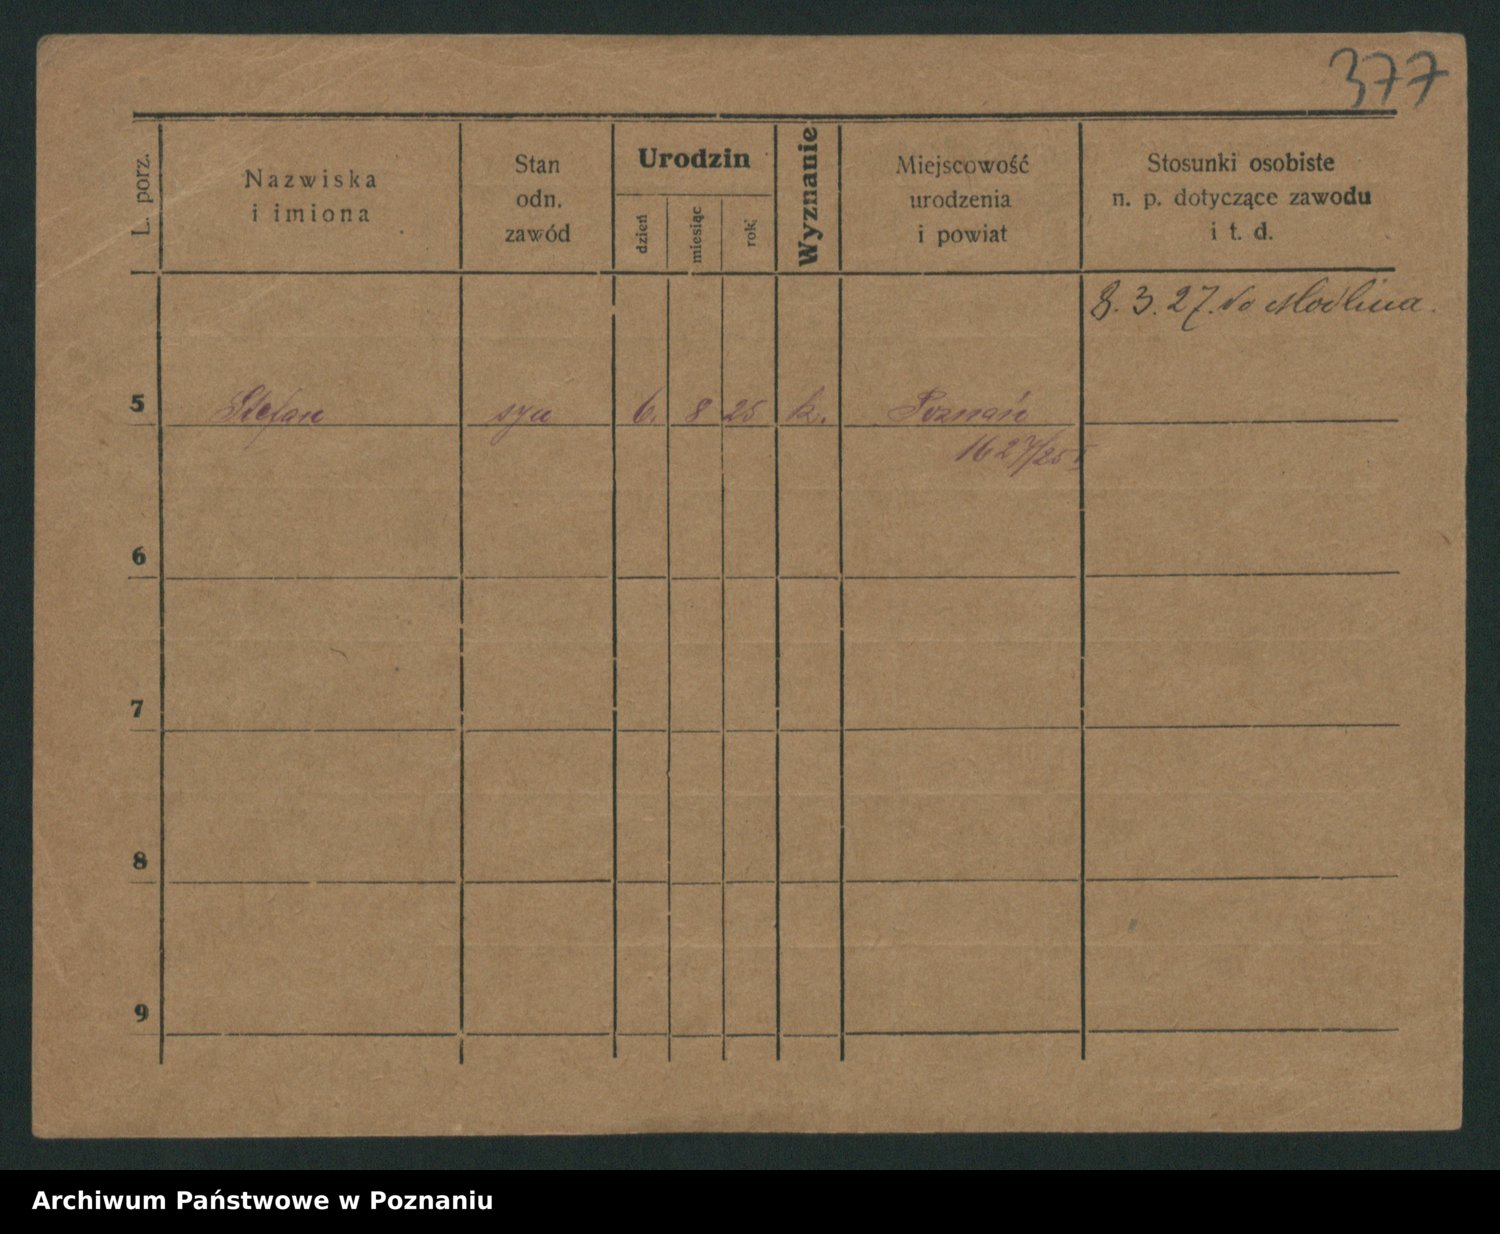 377
L. porz.
Nazwiska
i imiona
Stan
odn.
zawód
Urodzin
dzień
miesiąc
rok
Wyznanie
Miejscowość
urodzenia
i powiat
Stosunki osobiste
n. p. dotyczące zawodu
i t. d.
8. 3. 27. do Modlina.
5 Stefan syn 6. 8 25 k. Poznań
1627/25 I
6
7
8
9
Archiwum Państwowe w Poznaniu